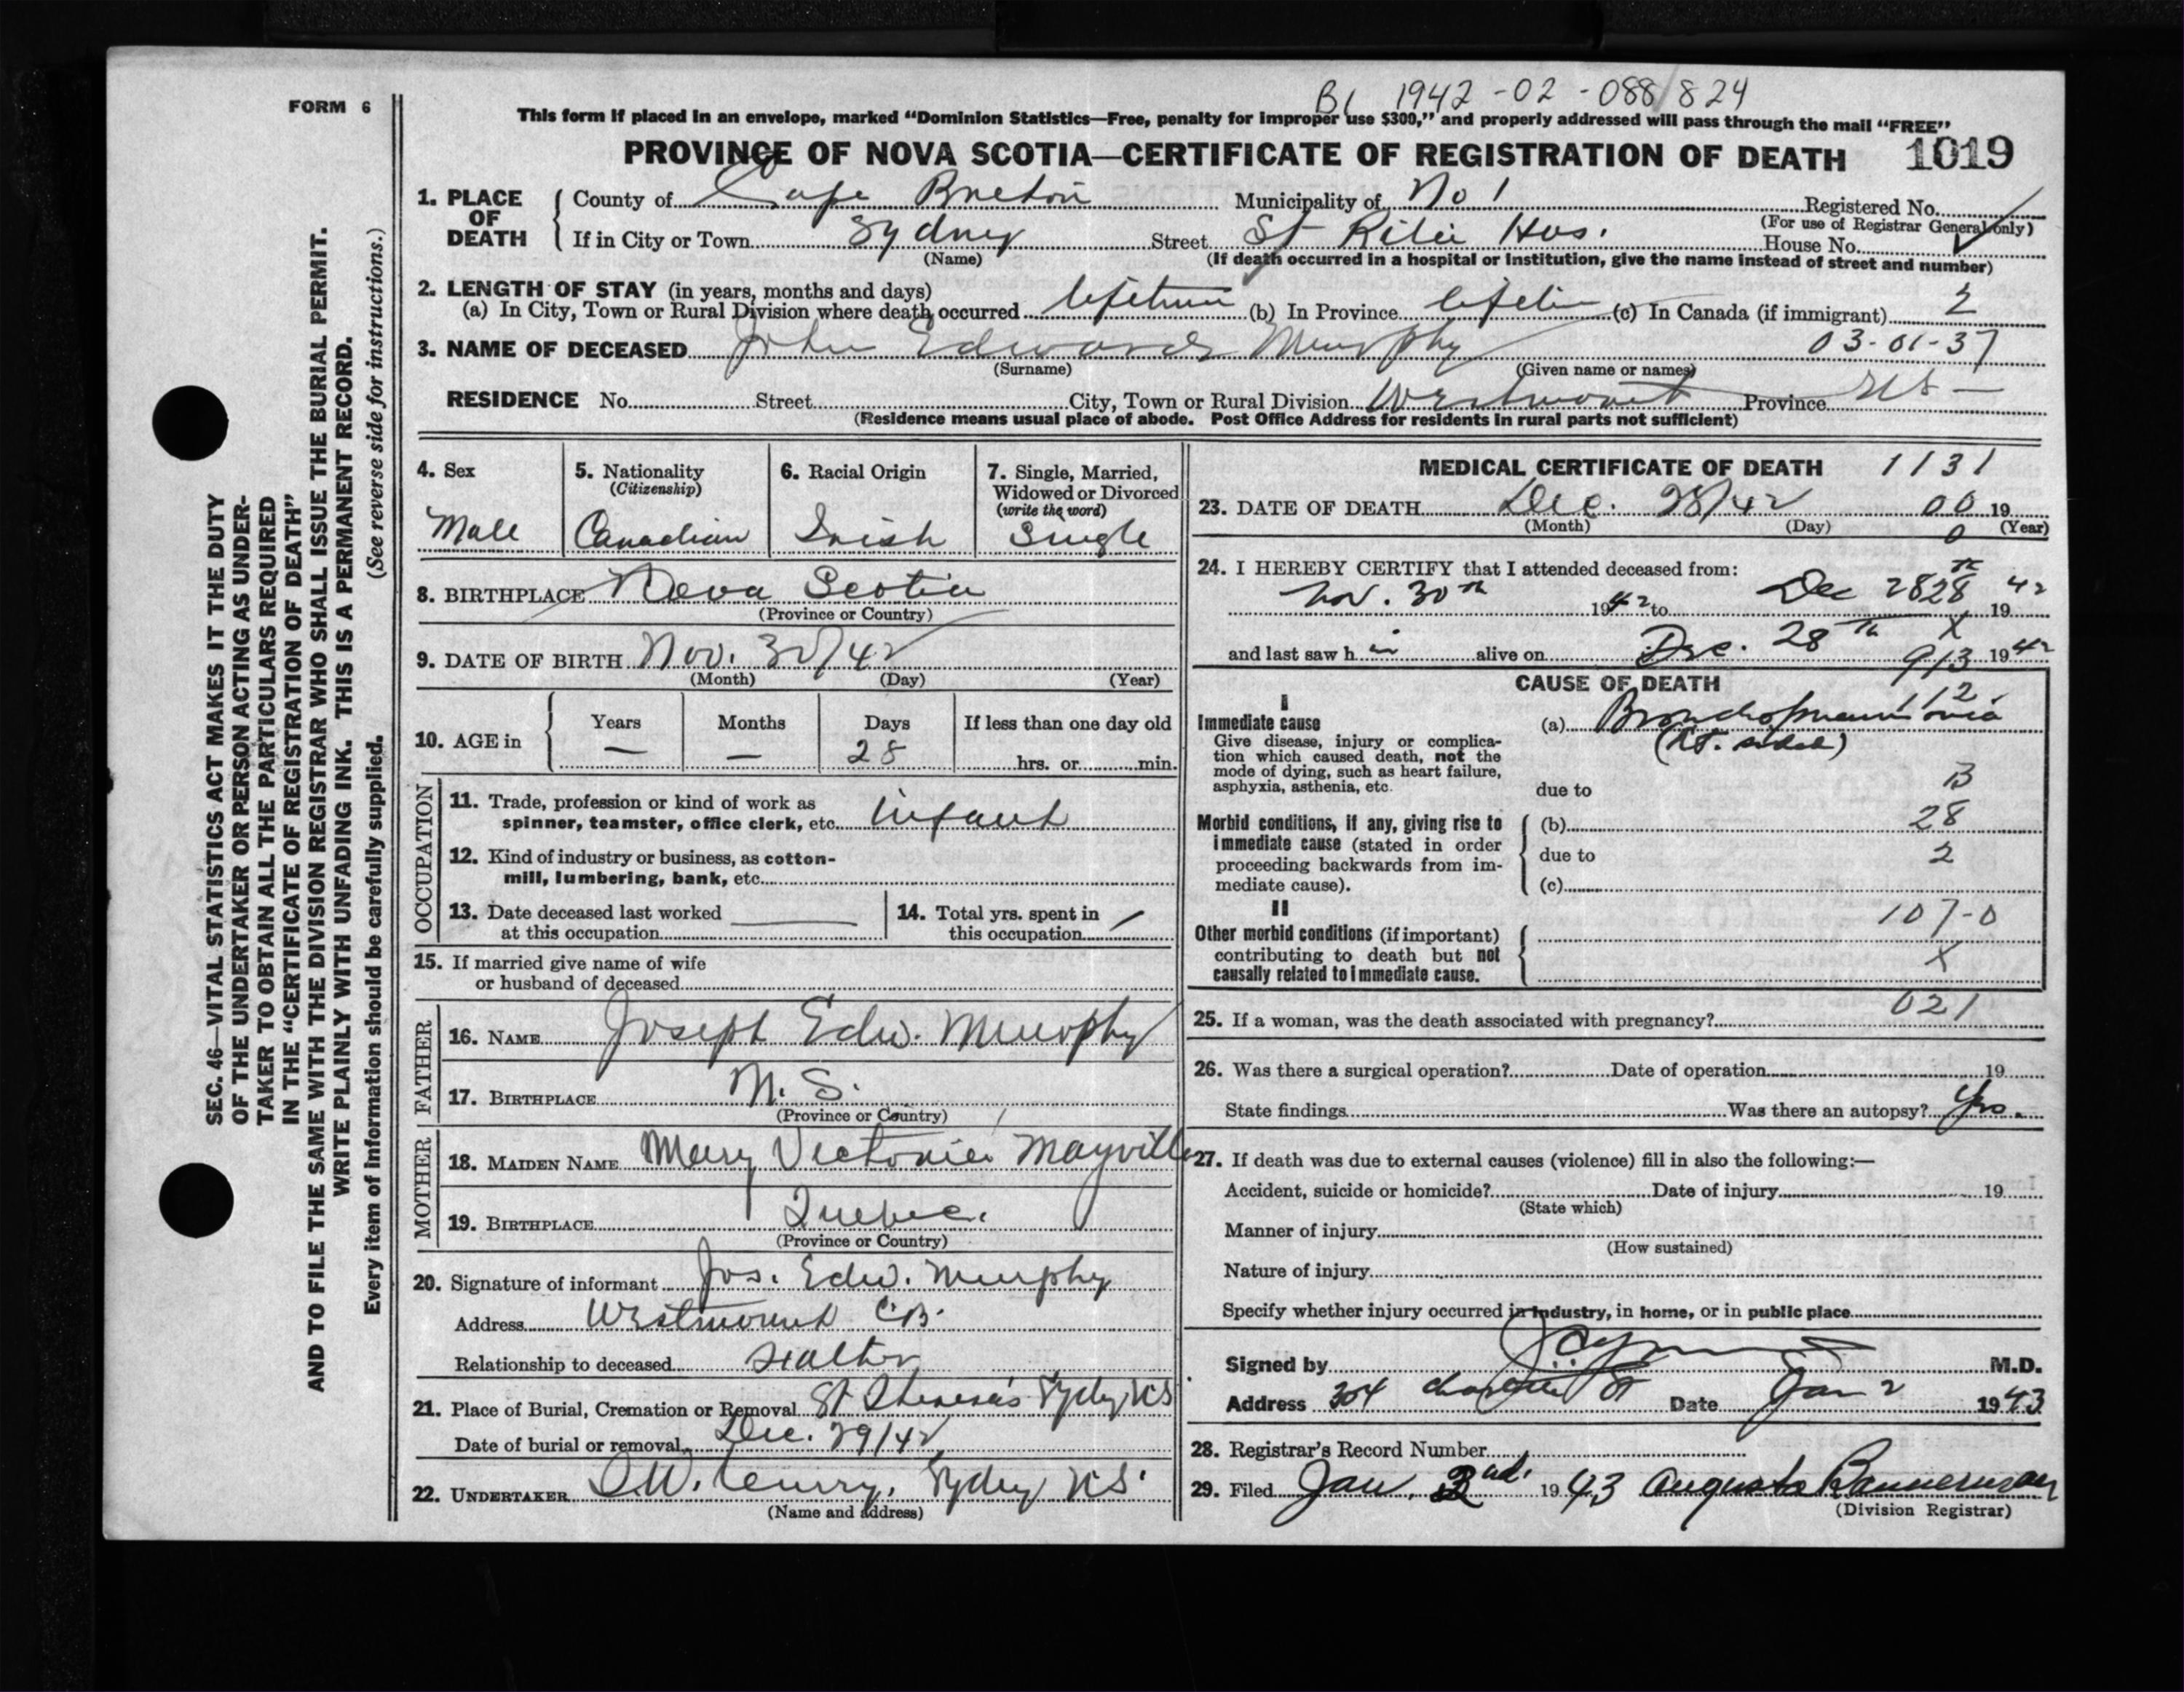 B1 1942-02-088824
FORM 6
This form if placed in an envelope, marked “Dominion Statistics—Free, penalty for improper use $300,” and properly addressed will pass through the mail “FREE”
PROVINCE OF NOVA SCOTIA—CERTIFICATE OF REGISTRATION OF DEATH 1019
1. PLACE OF DEATH
County of Cape Breton Municipality of No 1 Registered No.
(For use of Registrar General only)
If in City or Town Sydney Street St Rita Hos. House No.
(Name) (If death occurred in a hospital or institution, give the name instead of street and number)
2. LENGTH OF STAY (in years, months and days)
(a) In City, Town or Rural Division where death occurred lifetime (b) In Province lifetime (c) In Canada (if immigrant) 2
3. NAME OF DECEASED John Edward Murphy 03-01-37
(Surname) (Given name or names)
RESIDENCE No. Street City, Town or Rural Division Westmount Province NS
(Residence means usual place of abode. Post Office Address for residents in rural parts not sufficient)
4. Sex
Male
5. Nationality
(Citizenship)
Canadian
6. Racial Origin
Irish
7. Single, Married,
Widowed or Divorced
(write the word)
Single
8. BIRTHPLACE Nova Scotia
(Province or Country)
9. DATE OF BIRTH Nov. 30/42
(Month) (Day) (Year)
10. AGE in
Years Months Days If less than one day old
— — 28 hrs. or min.
OCCUPATION
11. Trade, profession or kind of work as
spinner, teamster, office clerk, etc. infant
12. Kind of industry or business, as cotton-
mill, lumbering, bank, etc.
13. Date deceased last worked
at this occupation
14. Total yrs. spent in
this occupation
15. If married give name of wife
or husband of deceased
FATHER
16. NAME Joseph Edw. Murphy
17. BIRTHPLACE N. S.
(Province or Country)
MOTHER
18. MAIDEN NAME Mary Victoria Mayville
19. BIRTHPLACE Quebec.
(Province or Country)
20. Signature of informant Jos. Edw. Murphy
Address Westmount C.B.
Relationship to deceased Father
21. Place of Burial, Cremation or Removal St Theresa's Sydney NS
Date of burial or removal Dec. 29/42
22. UNDERTAKER Curry, Sydney N.S.
(Name and address)
MEDICAL CERTIFICATE OF DEATH 1131
23. DATE OF DEATH Dec. 28/42 00 19
(Month) (Day) (Year)
0
24. I HEREBY CERTIFY that I attended deceased from:
Nov. 30th 1942 to Dec 28 28th 19 42
X
and last saw h im alive on Dec. 28th 1942
913
CAUSE OF DEATH
112
I
Immediate cause
Give disease, injury or complica-
tion which caused death, not the
mode of dying, such as heart failure,
asphyxia, asthenia, etc.
(a) Bronchopneumonia
(Rt. sided)
B
due to
Morbid conditions, if any, giving rise to
immediate cause (stated in order
proceeding backwards from im-
mediate cause).
(b) 28
due to 2
(c)
II
Other morbid conditions (if important)
contributing to death but not
causally related to immediate cause.
107-0
X
021
25. If a woman, was the death associated with pregnancy?
26. Was there a surgical operation? Date of operation 19
State findings Was there an autopsy? Yes.
27. If death was due to external causes (violence) fill in also the following:—
Accident, suicide or homicide? Date of injury 19
(State which)
Manner of injury
(How sustained)
Nature of injury
Specify whether injury occurred in industry, in home, or in public place
Signed by M.D.
Address 304 Charlotte St Date Jan 2 1943
28. Registrar's Record Number
29. Filed Jan. 2nd. 1943 Augusta Bannerman
(Division Registrar)
SEC. 46—VITAL STATISTICS ACT MAKES IT THE DUTY
OF THE UNDERTAKER OR PERSON ACTING AS UNDER-
TAKER TO OBTAIN ALL THE PARTICULARS REQUIRED
IN THE “CERTIFICATE OF REGISTRATION OF DEATH”
AND TO FILE THE SAME WITH THE DIVISION REGISTRAR WHO SHALL ISSUE THE BURIAL PERMIT.
WRITE PLAINLY WITH UNFADING INK. THIS IS A PERMANENT RECORD.
Every item of information should be carefully supplied. (See reverse side for instructions.)